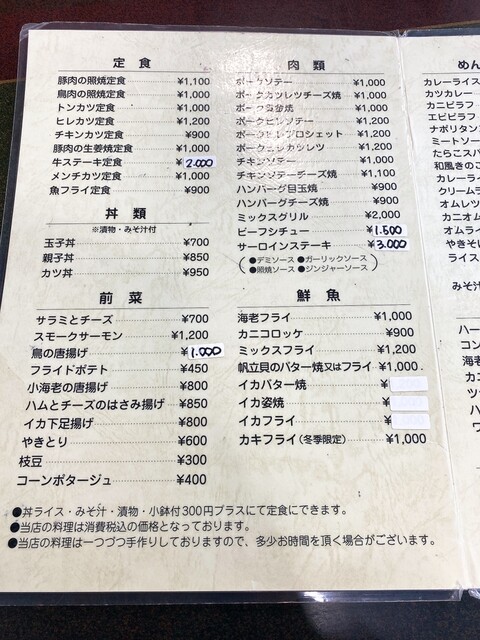 定食
豚肉の照焼定食 ¥1,100
鳥肉の照焼定食 ¥1,000
トンカツ定食 ¥1,000
ヒレカツ定食 ¥1,200
チキンカツ定食 ¥900
豚肉の生姜焼定食 ¥1,000
牛ステーキ定食 ¥2.000
メンチカツ定食 ¥1,000
魚フライ定食 ¥900
丼類
※漬物・みそ汁付
玉子丼 ¥700
親子丼 ¥850
カツ丼 ¥950
前菜
サラミとチーズ ¥700
スモークサーモン ¥1,200
鳥の唐揚げ ¥1.000
フライドポテト ¥450
小海老の唐揚げ ¥800
ハムとチーズのはさみ揚げ ¥850
イカ下足揚げ ¥800
やきとり ¥600
枝豆 ¥300
コーンポタージュ ¥400
肉類
ポークソテー ¥1,000
ポークカツレツチーズ焼 ¥1,000
ポーク ¥1,000
ポークヒレソテー ¥1,200
ポークヒレブロシェット ¥1,200
ポークヒレカツレツ ¥1,200
チキンソテー ¥1,000
チキンソテーチーズ焼 ¥1,100
ハンバーグ目玉焼 ¥900
ハンバーグチーズ焼 ¥900
ミックスグリル ¥2,000
ビーフシチュー ¥1.500
サーロインステーキ ¥3.000
●デミソース ●ガーリックソース
●照焼ソース ●ジンジャーソース
鮮魚
海老フライ ¥1,000
カニコロッケ ¥900
ミックスフライ ¥1,200
帆立貝のバター焼又はフライ ¥1,000
イカバター焼 ¥
イカ姿焼 ¥
イカフライ ¥
カキフライ(冬季限定) ¥1,000
●丼ライス・みそ汁・漬物・小鉢付300円プラスにて定食にできます。
●当店の料理は消費税込の価格となっております。
●当店の料理は一つづつ手作りしておりますので、多少お時間を頂く場合がございます。
めん
カレーライス
カツカレー
カニピラフ
エビピラフ
ナポリタン
ミートソー
たらこスパ
和風きのこ
カレーライ
クリームラ
オムレツ
カニオム
オムライ
やきそば
ライス
みそ汁
ハー
コン
海老
カニ
ツ
ハ
ワ